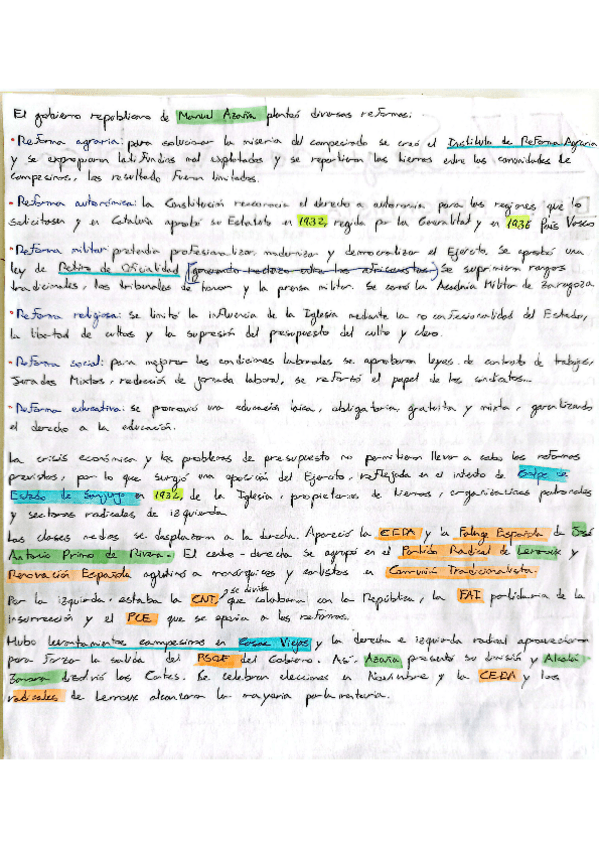 El gobierno republicano de Manuel Azaña planteó diversas reformas:
• Reforma agraria: para solucionar la miseria del campesinado se creó el Instituto de Reforma Agraria
y se expropiaron latifundios mal explotados y se repartieron las tierras entre las comunidades de
campesinos, los resultado fueron limitados.
• Reforma autonómica: la Constitución reconocía el derecho a autonomía para las regiones que lo
solicitasen y en Cataluña aprobó su Estatuto en 1932, regida por la Generalitat y en 1936 País Vasco
• Reforma militar: pretendía profesionalizar, modernizar y democratizar el Ejército. Se aprobó una
ley de Retiro de Oficialidad (generando rechazo entre los africanistas) Se suprimieron rangos
tradicionales, los tribunales de honor y la prensa militar. Se cerró la Academia Militar de Zaragoza
• Reforma religiosa: se limitó la influencia de la Iglesia mediante la no confesionalidad del Estado,
la libertad de cultos y la supresión del presupuesto del culto y clero.
• Reforma social: para mejorar las condiciones laborales se aprobaron leyes de contrato de trabajo,
Jurados Mixtos, reducción de jornada laboral, se reforzó el papel de los sindicatos...
• Reforma educativa: se promovió una educación laica, obligatoria, gratuita y mixta, garantizando
el derecho a la educación.
La crisis económica y los problemas de presupuesto no permitieron llevar a cabo las reformas
previstas, por lo que surgió una oposición del Ejército, reflejada en el intento de Golpe de
Estado de Sanjurjo en 1932, de la Iglesia, propietarios de tierras, organizaciones patronales
y sectores radicales de izquierda.
Las clases medias se desplazaron a la derecha. Apareció la CEDA y la Falange Española de José
Antonio Primo de Rivera. El centro-derecha se agrupó en el Partido Radical de Lerroux y
Renovación Española aglutinó a monárquicos y carlistas en Comunión Tradicionalista.
Por la izquierda, estaba la CNT, se dividía que colaboran con la República, la FAI partidaria de la
insurrección y el PCE que se oponía a las reformas.
Hubo levantamientos campesinos en Casas Viejas y la derecha e izquierda radical aprovecharon
para forzar la salida del PSOE del Gobierno. Así, Azaña presentó su dimisión y Alcalá-
Zamora disolvió las Cortes. Se celebran elecciones en Noviembre y la CEDA y los
radicales de Lerroux alcanzaron la mayoría parlamentaria.